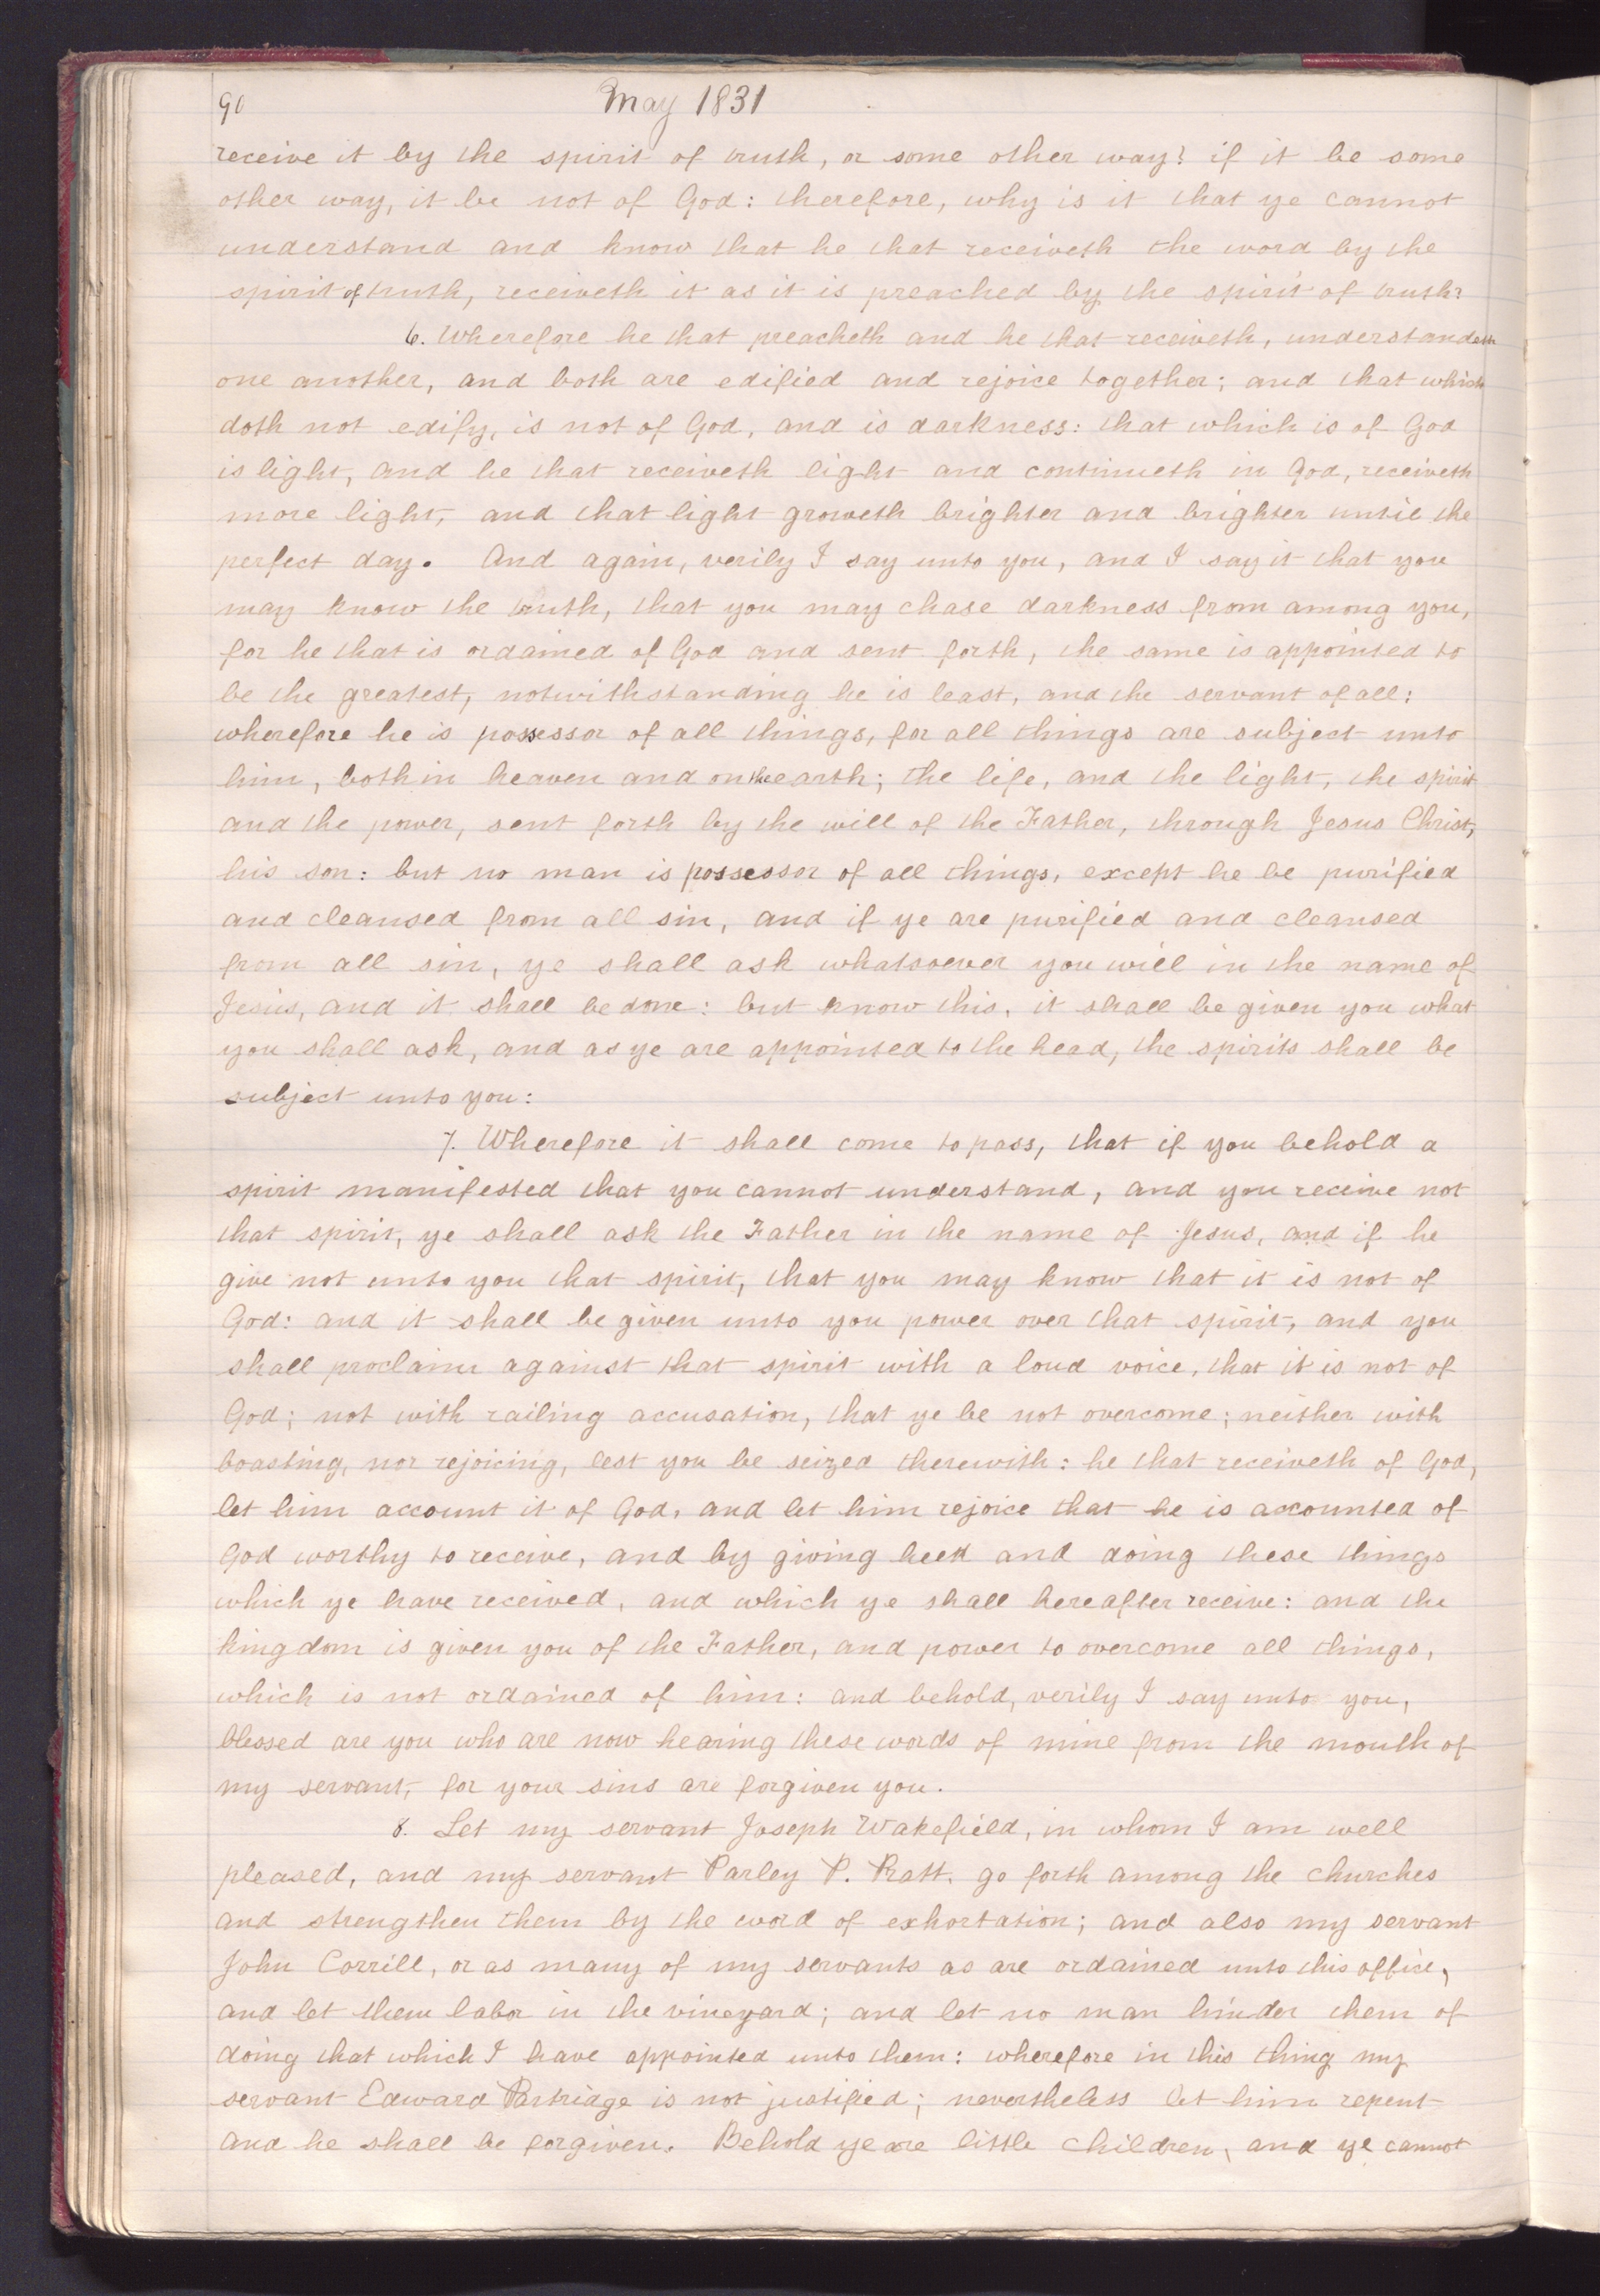 90
May 1831
receive it by the spirit of truth, or some other way? if it be some
other way, it be not of God: therefore, why is it that ye cannot
understand and know that he that receiveth the word by the
spirit of truth, receiveth it as it is preached by the spirit of truth?
6. Wherefore he that preacheth and he that receiveth, understandeth
one another, and both are edified and rejoice together; and that which
doth not edify, is not of God, and is darkness: that which is of God
is light, and he that receiveth light and continueth in God, receiveth
more light, and that light groweth brighter and brighter until the
perfect day. And again, verily I say unto you, and I say it that you
may know the truth, that you may chase darkness from among you,
for he that is ordained of God and sent forth, the same is appointed to
be the greatest, notwithstanding he is least, and the servant of all:
wherefore he is possessor of all things, for all things are subject unto
him, both in heaven and on the earth; the life, and the light, the spirit
and the power, sent forth by the will of the Father, through Jesus Christ,
his son: but no man is possessor of all things, except he be purified
and cleansed from all sin, and if ye are purified and cleansed
from all sin, ye shall ask whatsoever you will in the name of
Jesus, and it shall be done: but know this, it shall be given you what
you shall ask, and as ye are appointed to the head, the spirits shall be
subject unto you:
7. Wherefore it shall come to pass, that if you behold a
spirit manifested that you cannot understand, and you receive not
that spirit, ye shall ask the Father in the name of Jesus, and if he
give not unto you that spirit, that you may know that it is not of
God: and it shall be given unto you power over that spirit, and you
shall proclaim against that spirit with a loud voice, that it is not of
God; not with railing accusation, that ye be not overcome; neither with
boasting, nor rejoicing, lest you be seized therewith: he that receiveth of God,
let him account it of God, and let him rejoice that he is accounted of
God worthy to receive, and by giving heed and doing these things
which ye have received, and which ye shall hereafter receive: and the
kingdom is given you of the Father, and power to overcome all things,
which is not ordained of him: and behold, verily I say unto you,
blessed are you who are now hearing these words of mine from the mouth of
my servant, for your sins are forgiven you.
8. Let my servant Joseph Wakefield, in whom I am well
pleased, and my servant Parley P. Pratt, go forth among the churches
and strengthen them by the word of exhortation; and also my servant
John Corrill, or as many of my servants as are ordained unto this office,
and let them labor in the vineyard; and let no man hinder them of
doing that which I have appointed unto them: wherefore in this thing my
servant Edward Partridge is not justified; nevertheless let him repent
and he shall be forgiven. Behold ye are little children, and ye cannot